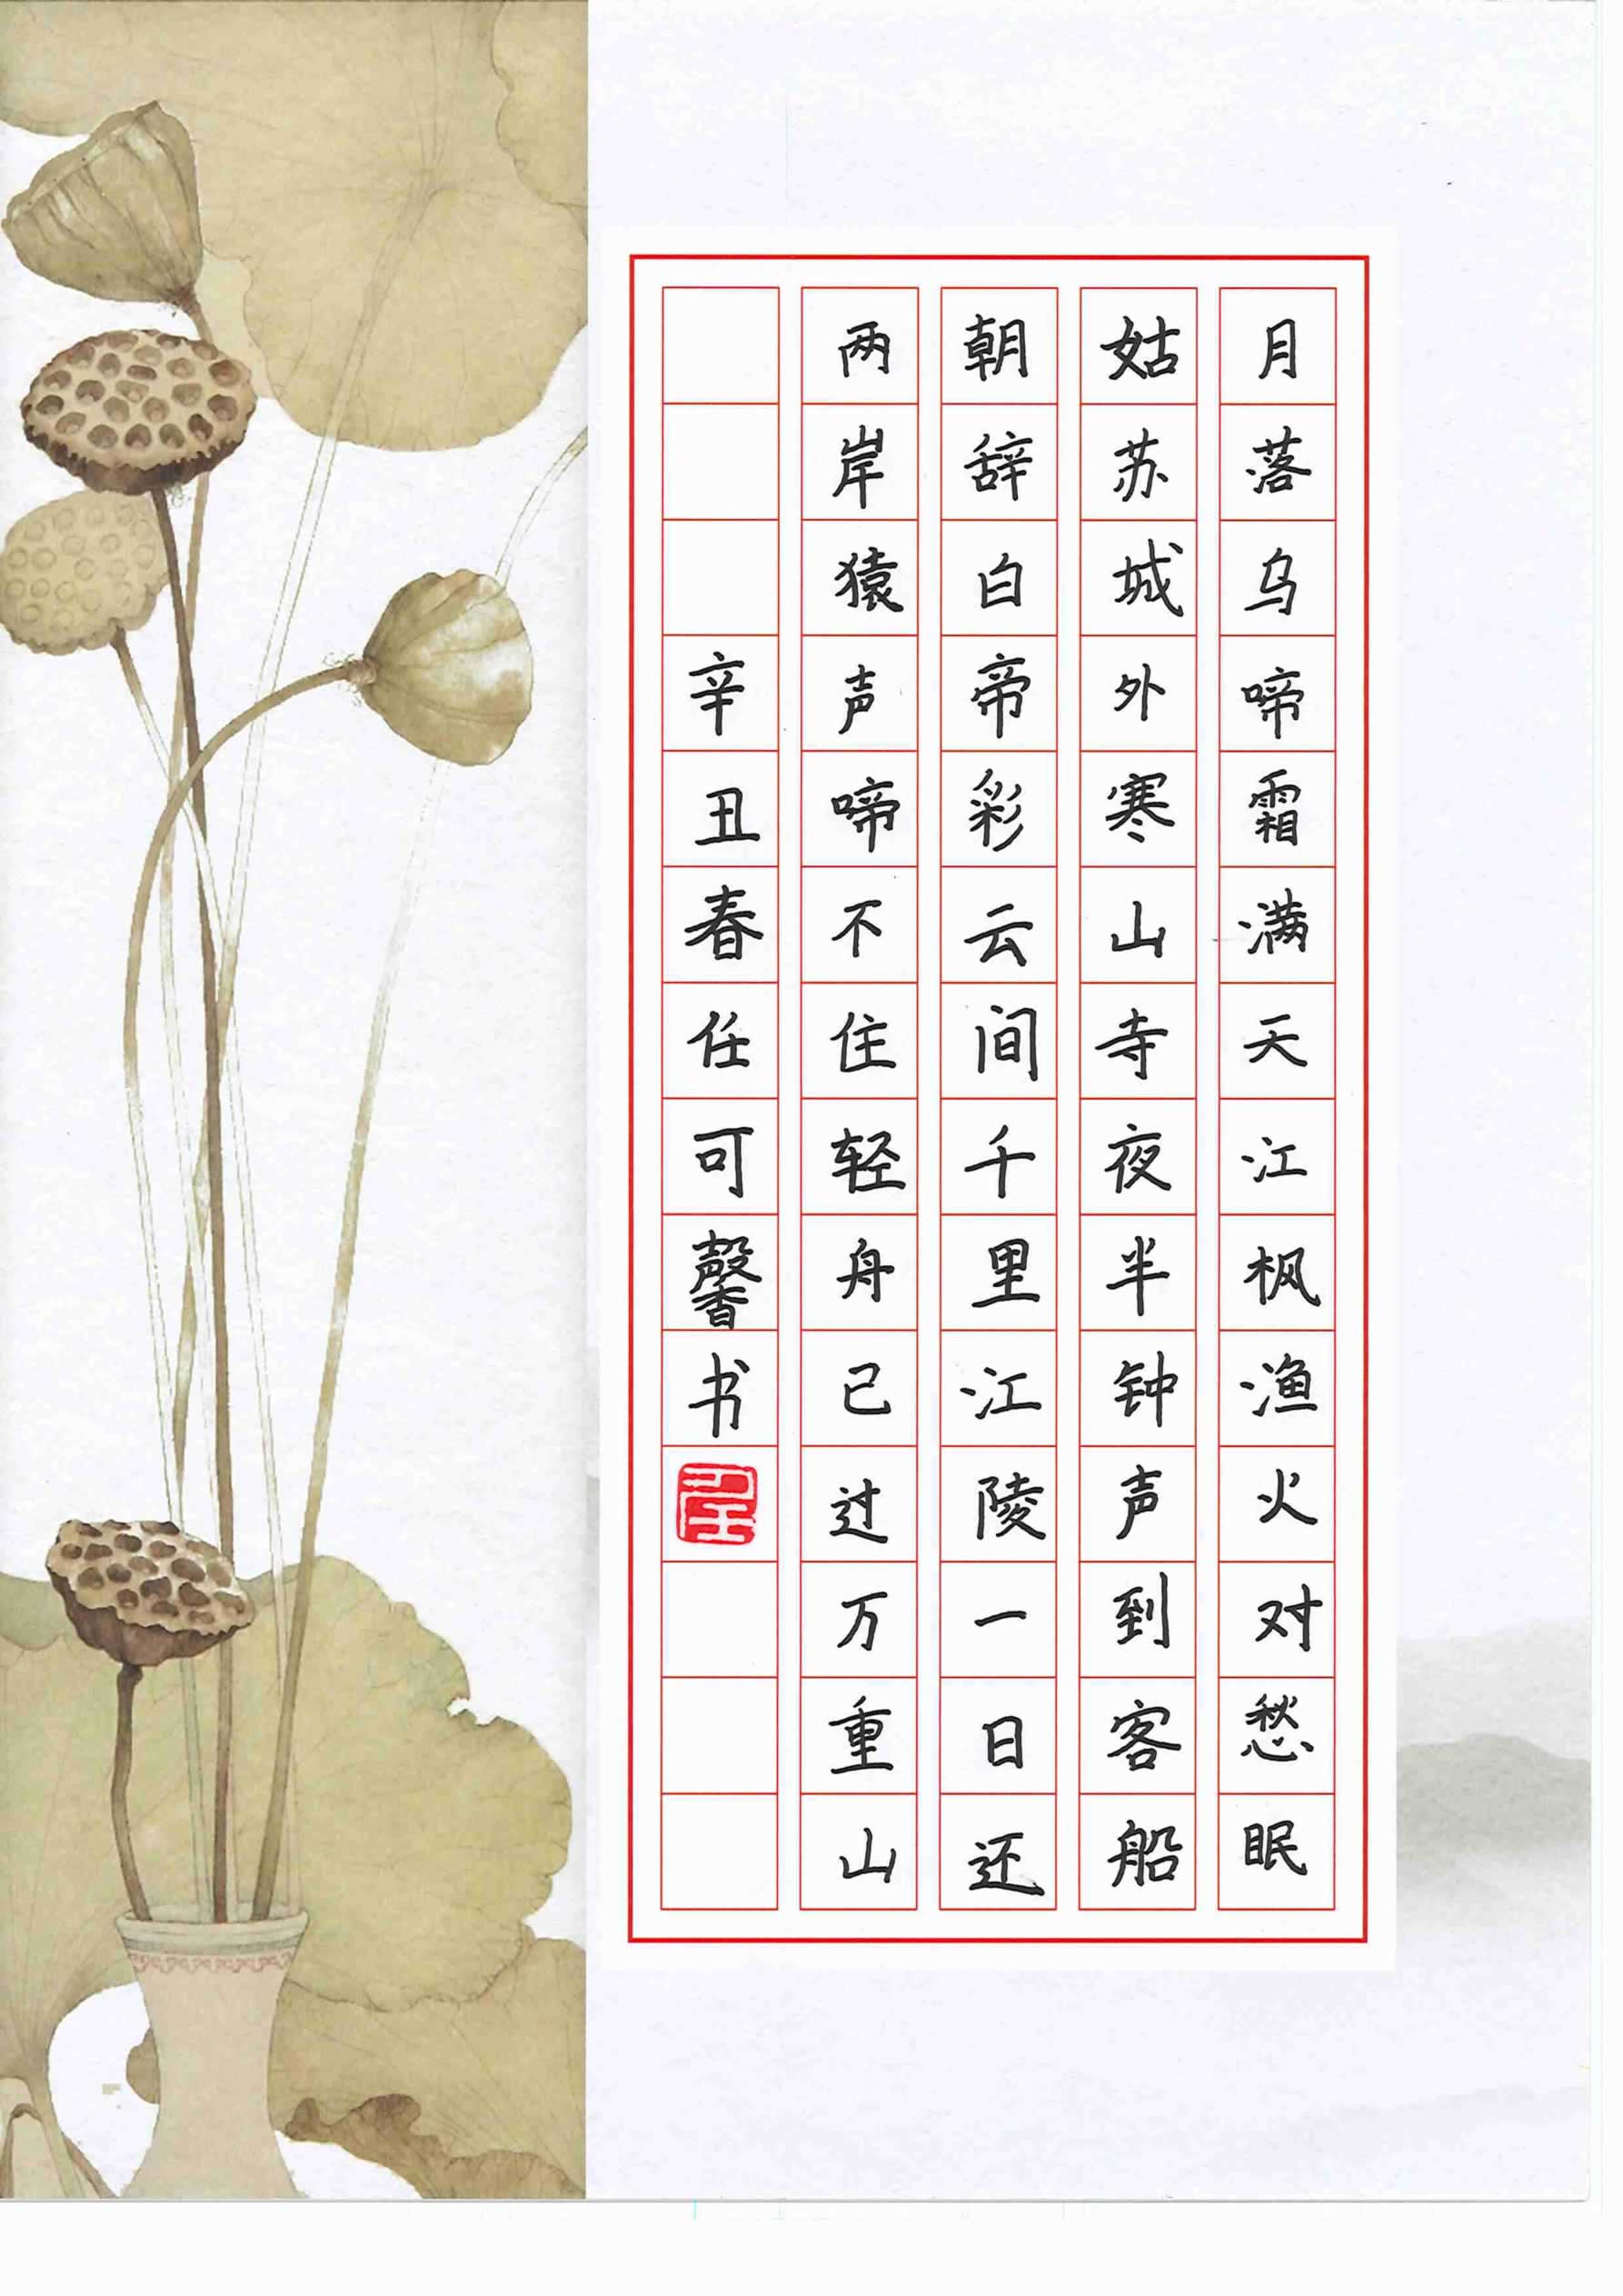 月落乌啼霜满天江枫渔火对愁眠
姑苏城外寒山寺夜半钟声到客船
朝辞白帝彩云间千里江陵一日还
两岸猿声啼不住轻舟已过万重山
辛丑春任可馨书